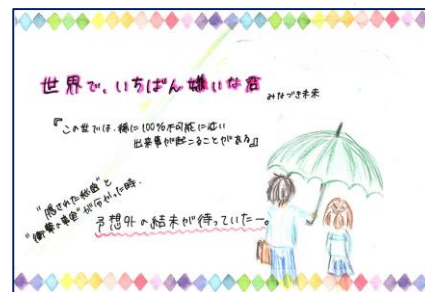 世界で、いちばん嫌いな君
みなづき未来
『この世では、稀に100%不可能に近い
出来事が起こることがある』
"隠された秘密"と
"衝撃の事実"が分かった時、
予想外の結末が待っていたー。